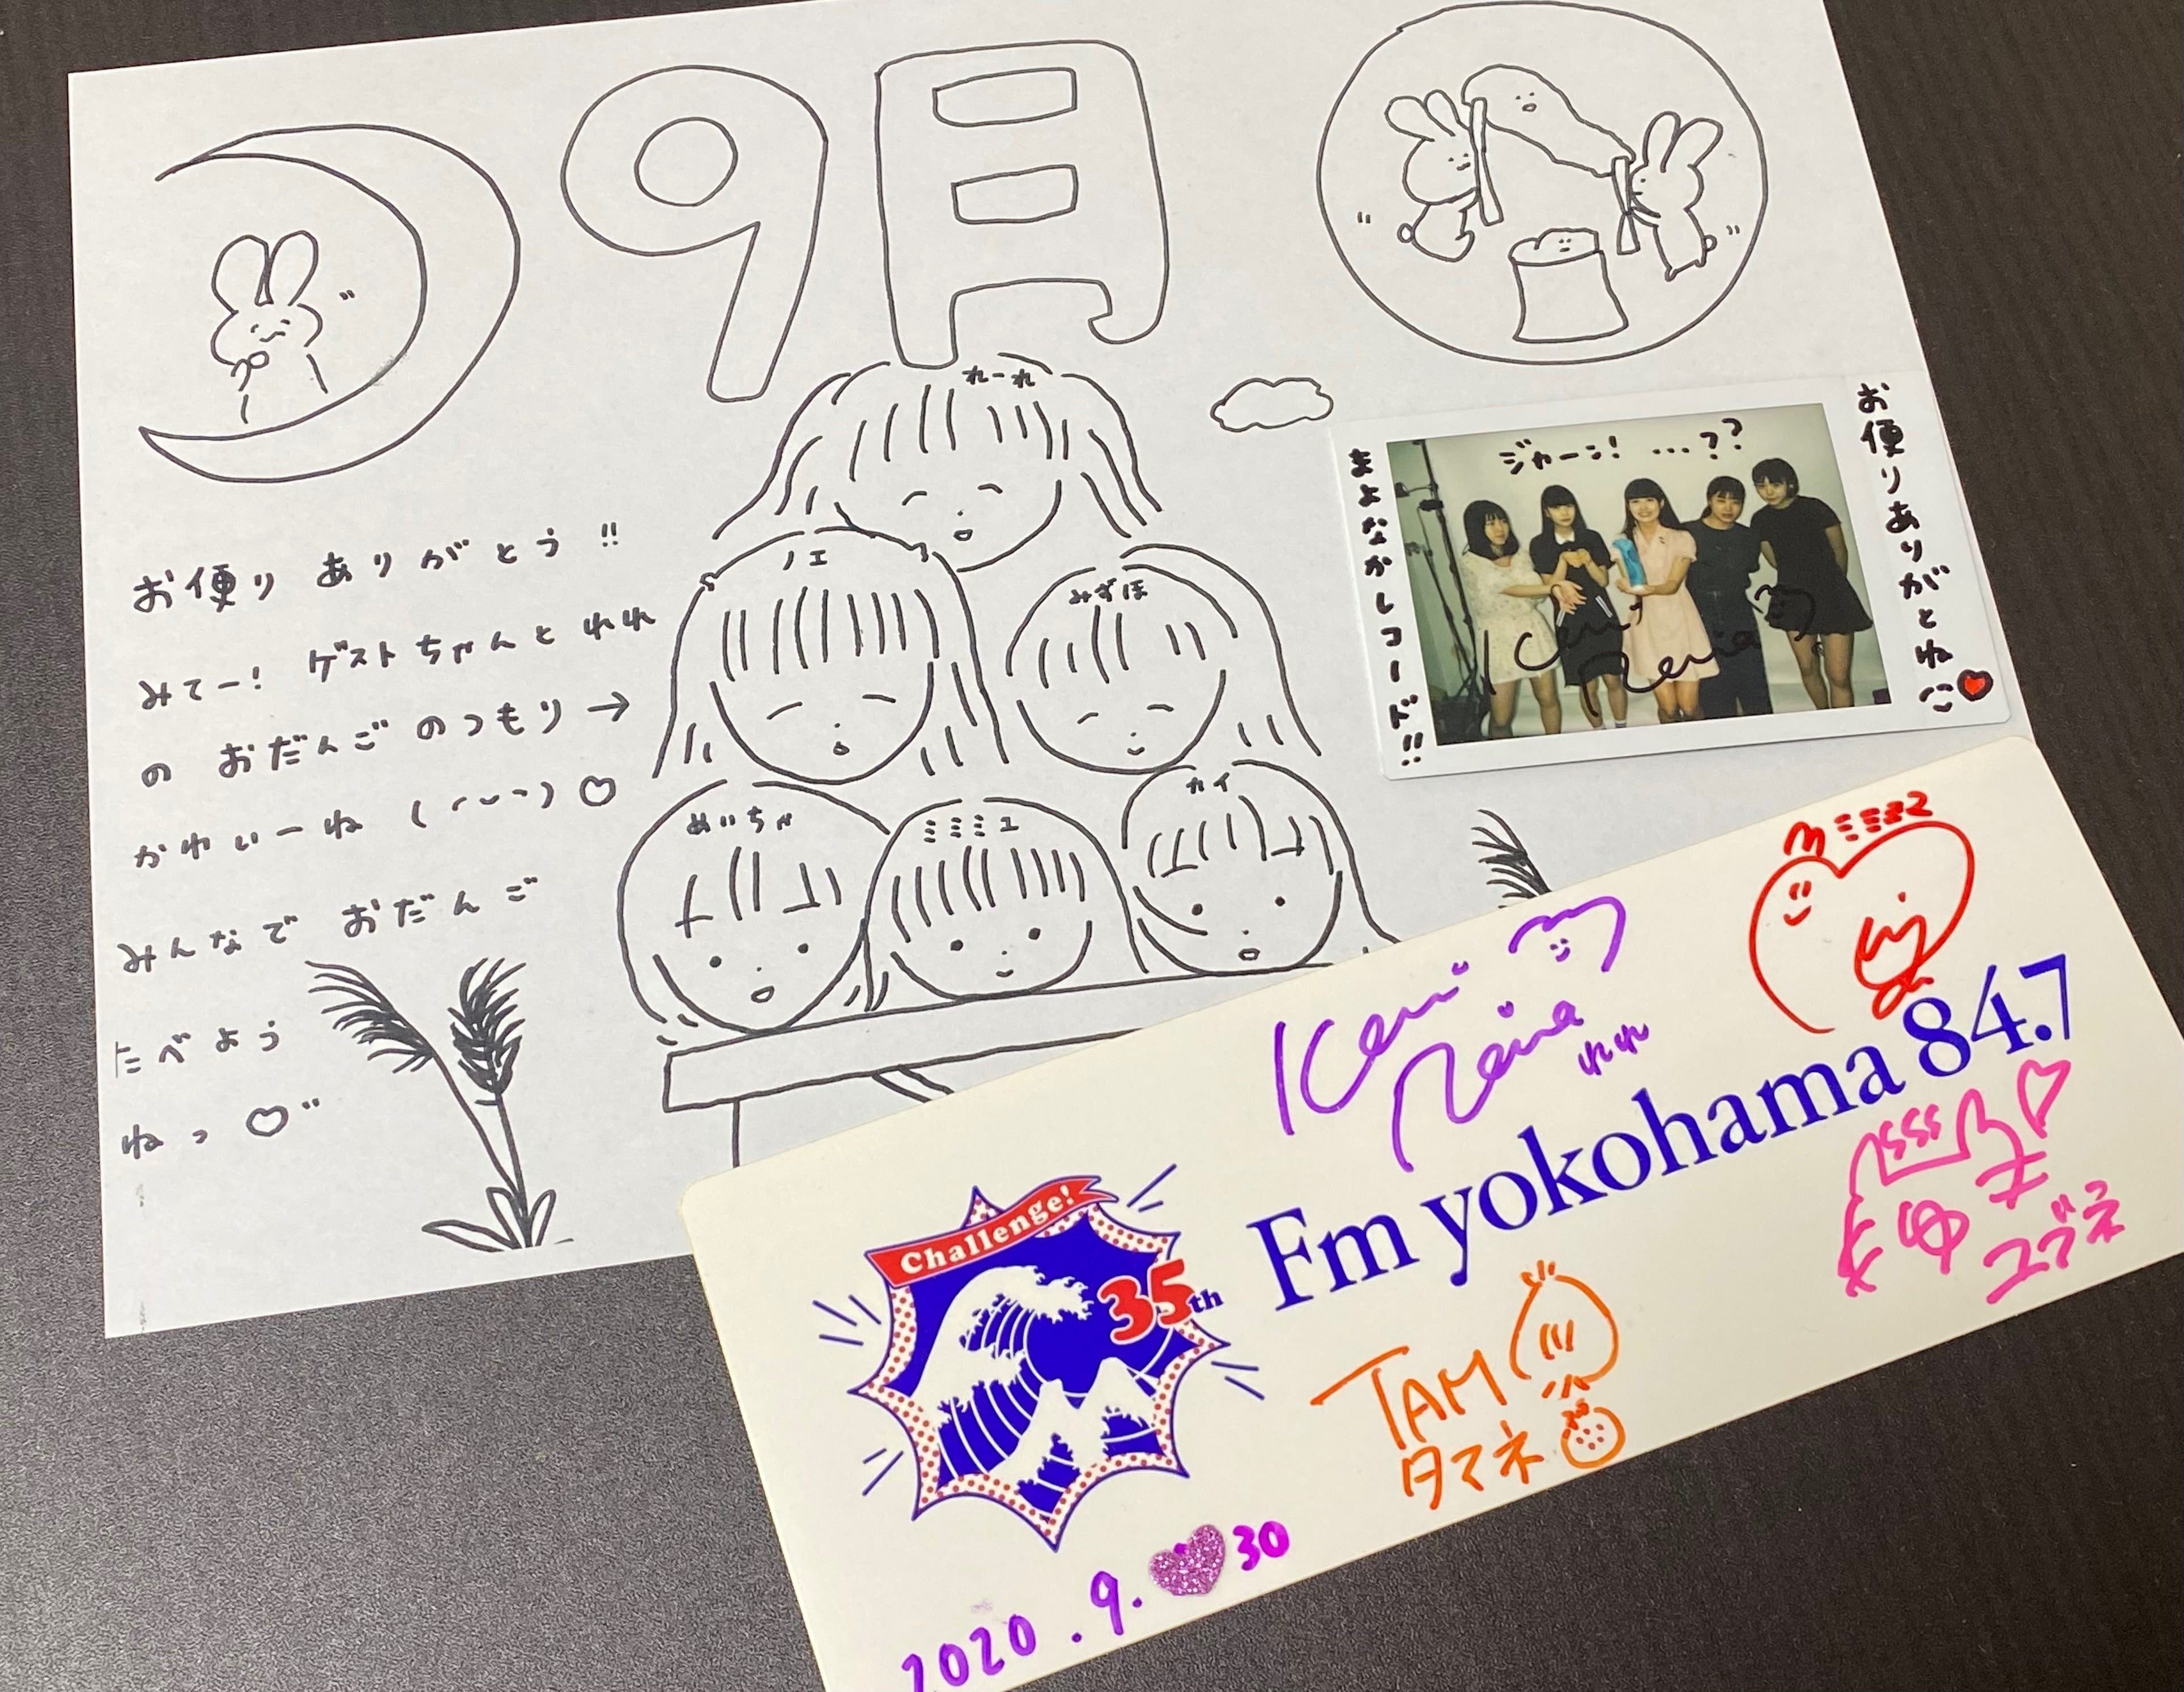 9月
れーれ
ノエ
みずほ
めいちゃ
ミミミユ
カイ
お便り ありがとう!!
みてー! ゲストちゃんと れれ
の おだんご のつもり→
かわいーね
みんなで おだんご
たべよう
ねっ
ジャーン! …??
お便りありがとね
まよなかレコード!!
Reina
Reina
れれ
Fm yokohama 84.7
Challenge!
35th
TAM
タマネ
コブネ
2020.9.30